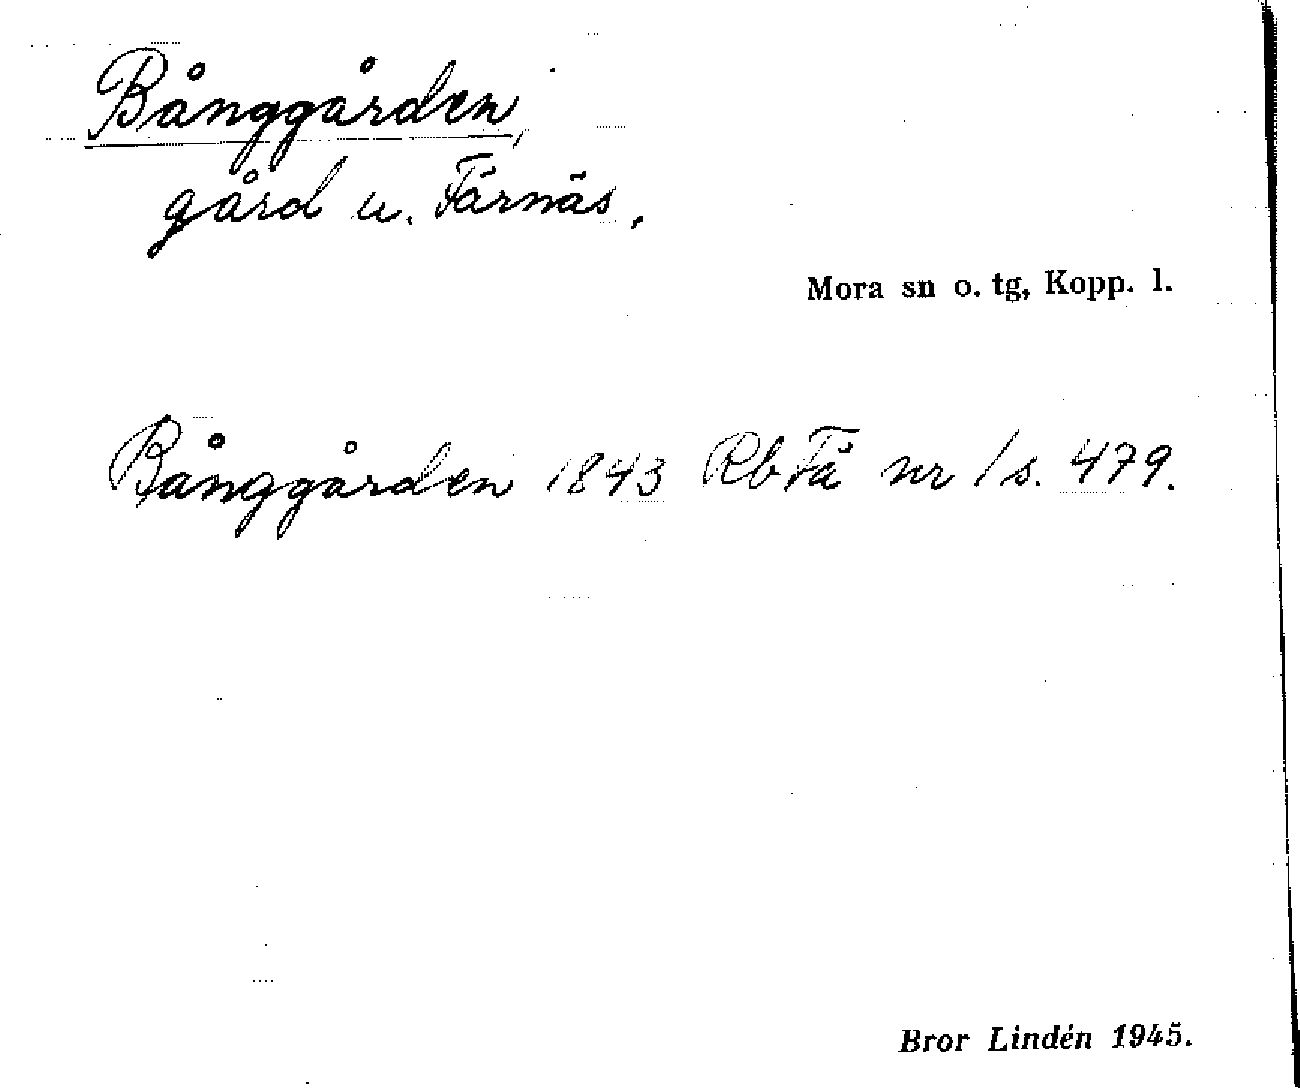 Bånggården,
gård u. Färnäs,
Mora sn o. tg, Kopp. l.
Bånggården 1843 Rb Fä nr 1 s. 479.
Bror Lindén 1945.